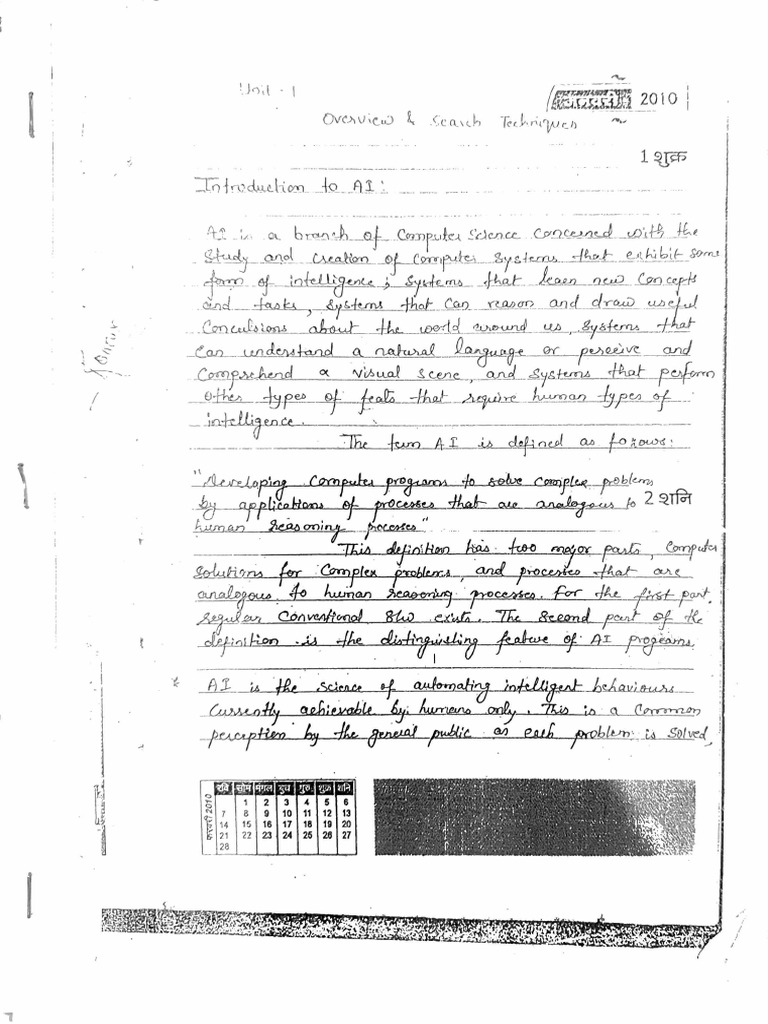 Unit - 1
2010
Overview & Search Techniques
1 शुक्र
Introduction to AI:
AI is a branch of Computer Science Concerned with the
Study and Creation of Computer Systems that exhibit some
form of intelligence; Systems that learn new Concepts
and tasks, Systems that Can reason and draw useful
Conculsions about the world around us, Systems that
Can understand a natural language or perceive and
Comprehend a visual scene, and Systems that perform
other types of feats that require human types of
intelligence.
The term AI is defined as follows:
"Developing Computer programs to solve complex problems
by applications of processes that are analogous to
2 शनि
human reasoning processes"
This definition has two major parts, Computer
Solutions for Complex problems, and processes that are
analogous to human reasoning processes. For the first part,
regular Conventional S/w exists. The Second part of the
definition is the distinguishing feature of AI programs.
* AI is the science of automating intelligent behaviours
Currently achievable by humans only. This is a Common
perception by the general public as each problem is solved,
फरवरी 2010
रवि सोम मंगल बुध गुरु शुक्र शनि
1 2 3 4 5 6
7 8 9 10 11 12 13
14 15 16 17 18 19 20
21 22 23 24 25 26 27
28